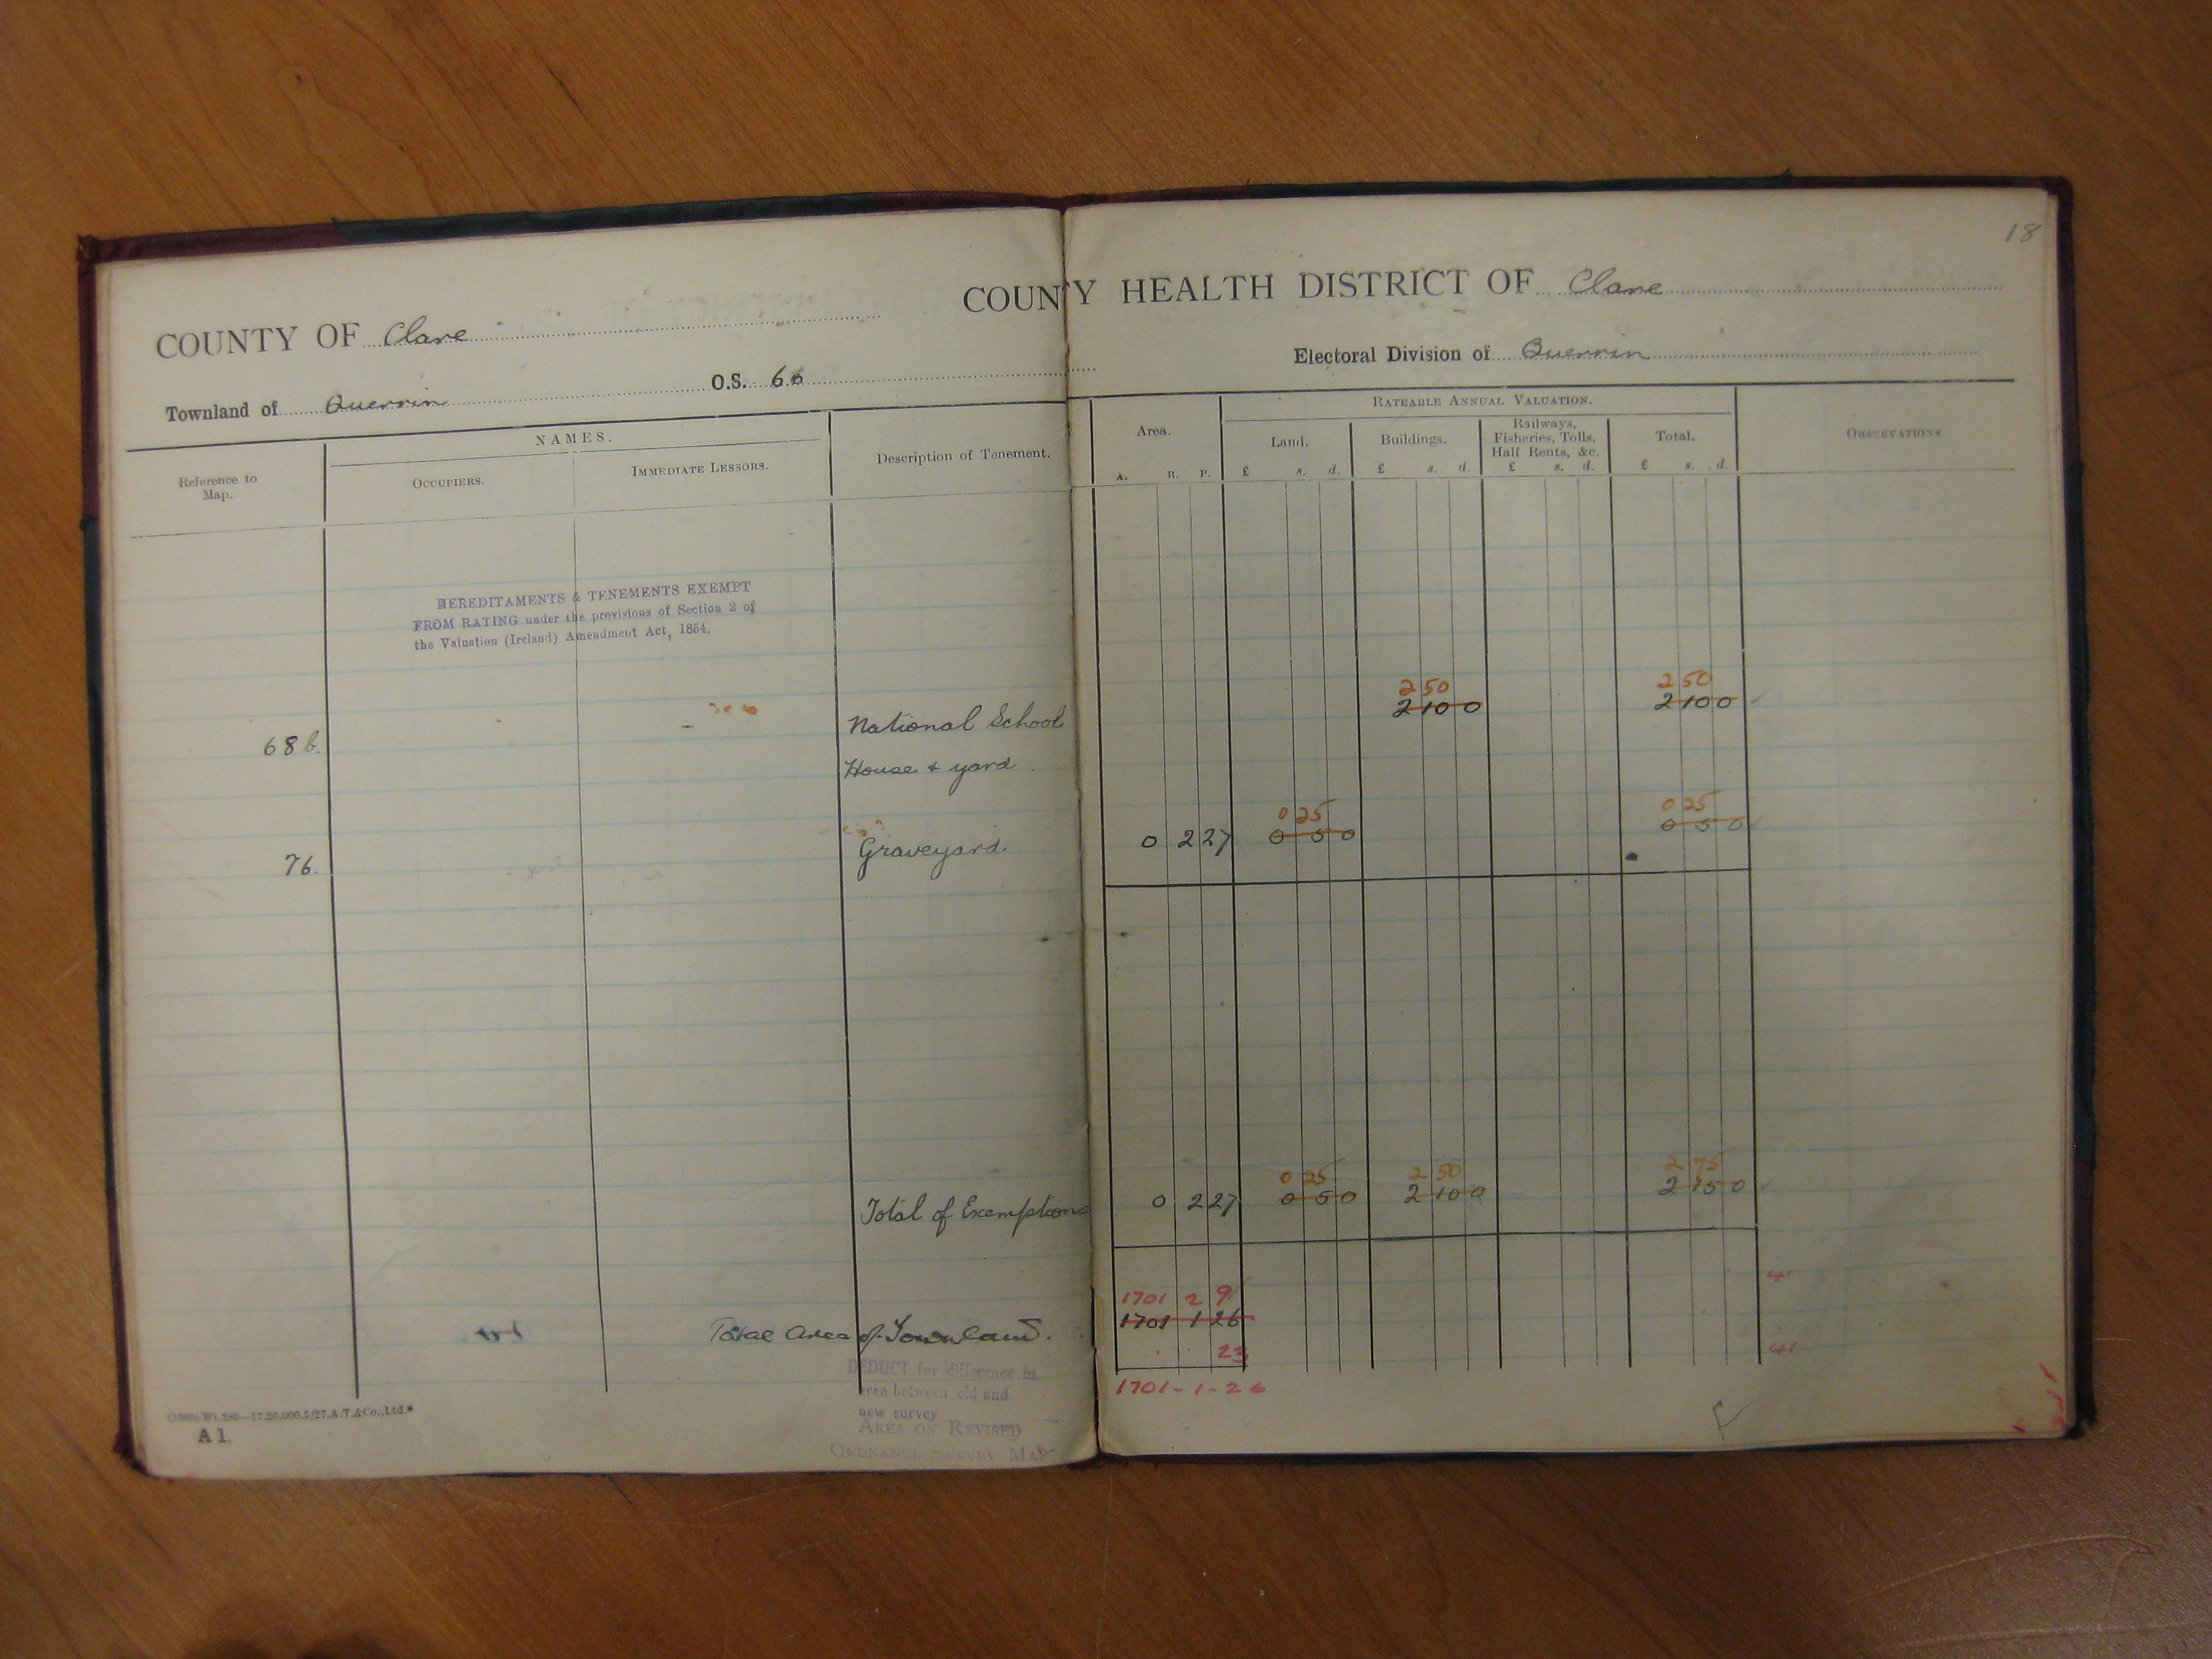 18
COUNTY HEALTH DISTRICT OF Clare
COUNTY OF Clare
Electoral Division of Querrin
Townland of Querrin O.S. 66
Reference to Map.
NAMES.
OCCUPIERS.
IMMEDIATE LESSORS.
Description of Tenement.
Area.
A. R. P.
RATEABLE ANNUAL VALUATION.
Land.
£ s. d.
Buildings.
£ s. d.
Railways, Fisheries, Tolls, Half Rents, &c.
£ s. d.
Total.
£ s. d.
OBSERVATIONS
HEREDITAMENTS & TENEMENTS EXEMPT
FROM RATING under the provisions of Section 2 of
the Valuation (Ireland) Amendment Act, 1854.
2 50 2 50
68b. National School 2 10 0 2 10 0
House & yard
0 25 0 25
76. Graveyard 0 2 27 0 5 0 0 5 0
0 25 2 50 2 75
Total of Exemptions 0 2 27 0 5 0 2 10 0 2 15 0
1701 2 9
Total Area of Townland. 1701 1 26
23
DEDUCT for difference in
area between old and
new survey
1701-1-26
AREA ON REVISED
ORDNANCE SURVEY MAP
A 1.